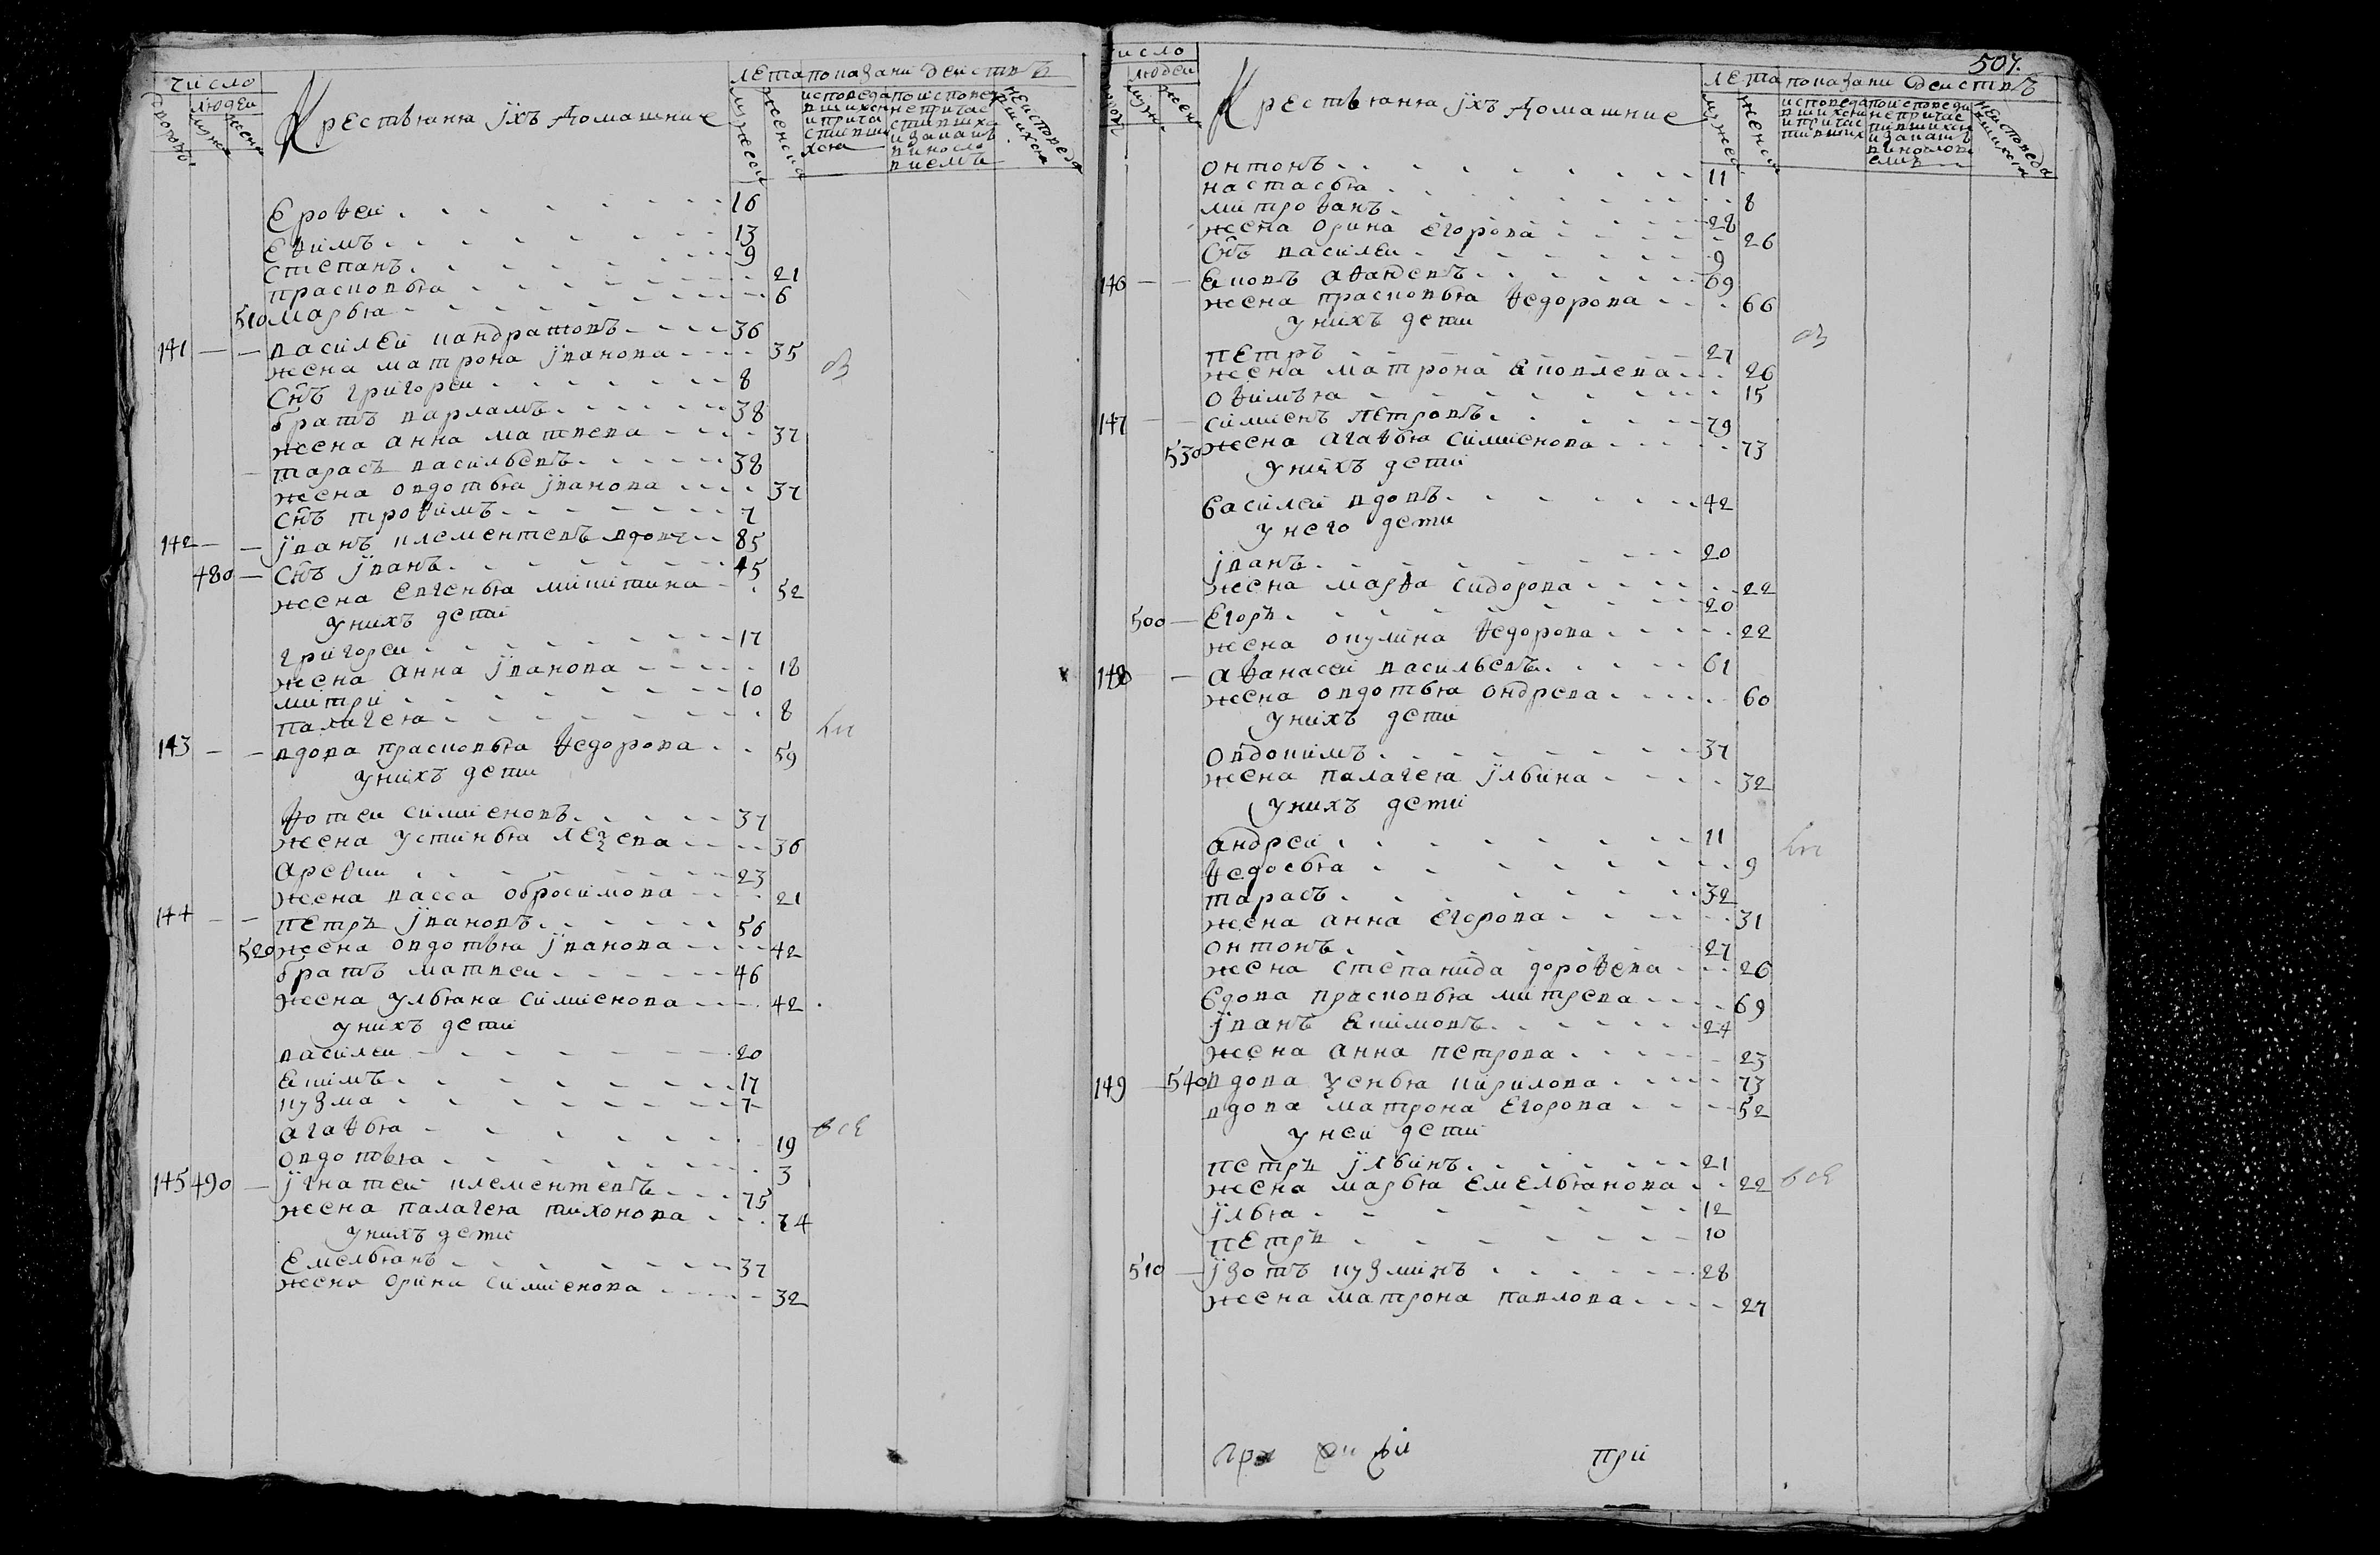 число
людей
дворовъ
мужска
женска
Крестьяня ихъ домашние
лета показани деиствъ
мужеска
женска
исповеда вшихся и прича стившихся
по исповед не причас тившихся и за какимъ виносло виемъ
неисповеда вшихся
Ерофеи 16
Ефимъ 13
Степанъ 9
Прасковья 21
510 Марья 6
141 — — василеи кандратовъ 36
жена матрона iванова 35
Снъ григореи 8
братъ варламъ 38
жена анна матвева 37
— тарасъ васильевъ 38
жена овдотья iванова 37
Снъ трофимъ 7
142 — — iванъ клементевъ вдовъ 85
480 — Снъ iванъ 45
жена евгенья микитина 52
у нихъ дети
григореи 17
жена анна iванова 18
митри 10
палагея 8
143 — — вдова прасковья федорова 59
у нихъ дети
фотеи симионовъ 37
жена устинья 36
Арефии 23
жена васса обросимова 21
144 — — петръ iвановъ 56
520 жена овдотья iванова 42
братъ матвеи 46
жена ульяна симионова 42
у нихъ дети
василеи 20
Екимъ 17
кузма 7
агафья 19
овдотья 3
все
145 490 — iгнатеи клементевъ 75
жена палагея тихонова 74
у нихъ дети
Емельянъ 37
жена орина симионова 32
507.
число
людеи
мужска
женска
Крестьяня ихъ домашние
лета показани деиствъ
мужеска
женска
исповеда вшихся и причас тившихся
по исповеди не причас тившихся и за какимъ винослов емъ
неисповеда вшихся
онтонъ 11
настасья 8
митрофанъ 28
жена орина егорова 26
Снъ василеи 9
146 — — Яковъ афонсевъ 69
жена прасковья федорова 66
у нихъ дети
петръ 27
жена матрона яковлева 26
офимья 15
147 — — симионъ петровъ 79
530 жена агафья симионова 73
у нихъ дети
василеи вдовъ 42
у него дети
iванъ 20
жена марфа сидорова 22
500 — Егоръ 20
жена окулина федорова 22
148 — афанасеи васильевъ 61
жена овдотья ондрева 60
у нихъ дети
овдокимъ 37
жена палагея iльина 32
у нихъ дети
андреи 11
федосья 9
тарасъ 32
жена анна егорова 31
онтонъ 27
жена степанида дорофева 26
вдова прасковья митрева 69
iванъ екимовъ 24
жена анна петрова 23
149 — 540 вдова ксенья кирилова 73
вдова матрона егорова 52
у неи дети
петръ iльинъ 21
жена марья емельянова 22
все
iлья 12
петръ 10
510 — iзотъ кузминъ 28
жена матрона павлова 27
при